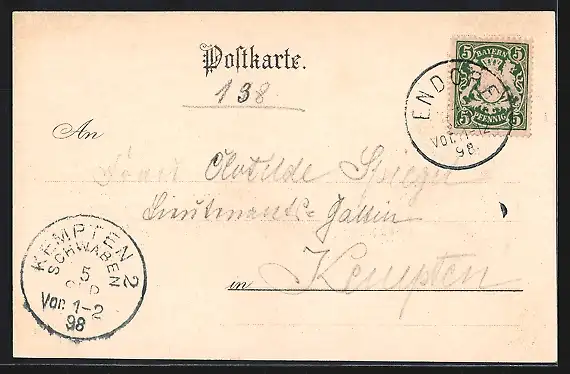 Postkarte.
138
5 BAYERN 5
5 PFENNIG 5
ENDORF
Vor. 11-12
98.
An
Frau Clotilde Spiegel
Lieutenants-Gattin
in Kempten
KEMPTEN 2
SCHWABEN
5
Vor. 1-2
98